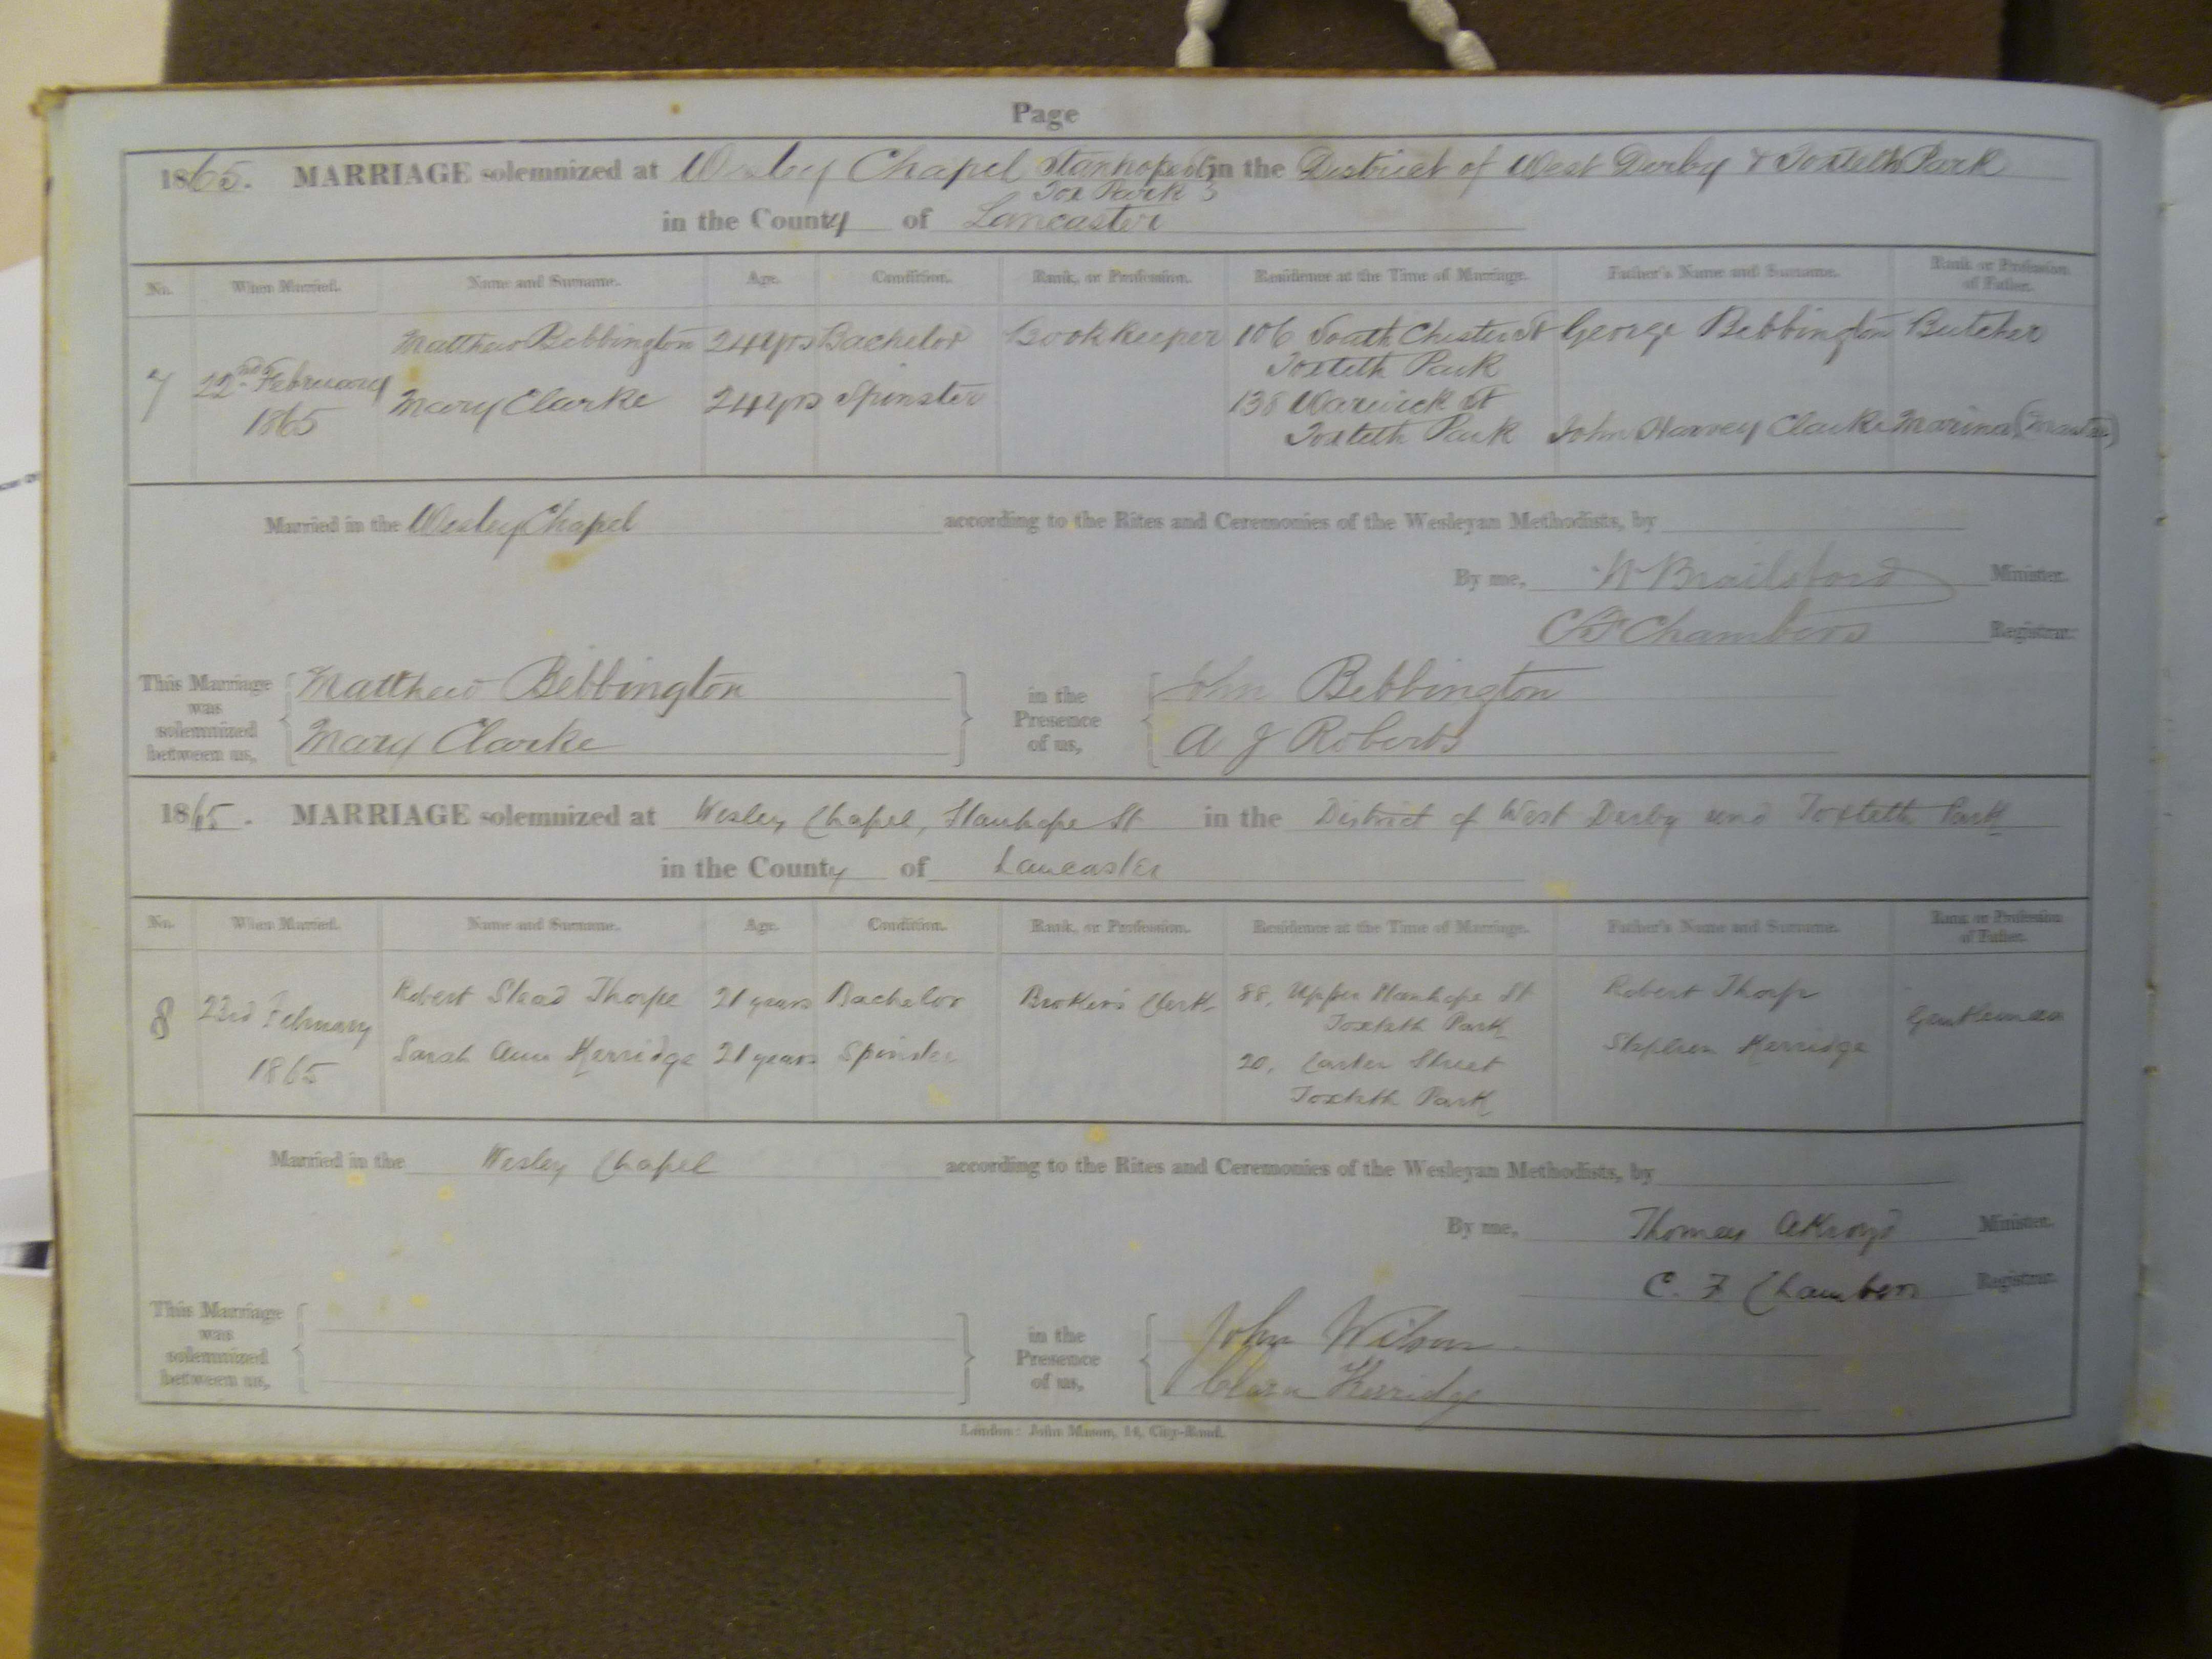 Page
1865. MARRIAGE solemnized at Wesley Chapel Stanhope St in the District of West Derby & Toxteth Park
Tox Park
in the County of Lancaster
No. When Married. Name and Surname. Age. Condition. Rank, or Profession. Residence at the Time of Marriage. Father's Name and Surname. Rank or Profession of Father.
Matthew Bebbington 24 yrs Bachelor Bookkeeper 106 South Chester St George Bebbington Butcher
Toxteth Park
7 22nd February Mary Clarke 24 yrs Spinster 138 Warwick St
1865 Toxteth Park John Harvey Clarke Mariner (Master)
Married in the Wesley Chapel according to the Rites and Ceremonies of the Wesleyan Methodists, by
By me, W Brailsford Minister.
C F Chambers Registrar.
This Marriage was solemnized between us, Matthew Bebbington in the Presence of us, John Bebbington
Mary Clarke A J Roberts
1865. MARRIAGE solemnized at Wesley Chapel, Stanhope St in the District of West Derby and Toxteth Park
in the County of Lancaster
No. When Married. Name and Surname. Age. Condition. Rank, or Profession. Residence at the Time of Marriage. Father's Name and Surname. Rank or Profession of Father.
Robert Stead Thorpe 21 years Bachelor Broker's Clerk 88, Upper Stanhope St Robert Thorp
8 23rd February Toxteth Park Gentleman
Sarah Ann Kerridge 21 years Spinster 20, Carter Street Stephen Kerridge
1865 Toxteth Park
Married in the Wesley Chapel according to the Rites and Ceremonies of the Wesleyan Methodists, by
By me, Thomas Akroyd Minister.
C. F Chambers Registrar.
This Marriage was solemnized between us, in the Presence of us, John Wilson
Clara Kerridge
London: John Mason, 14, City-Road.